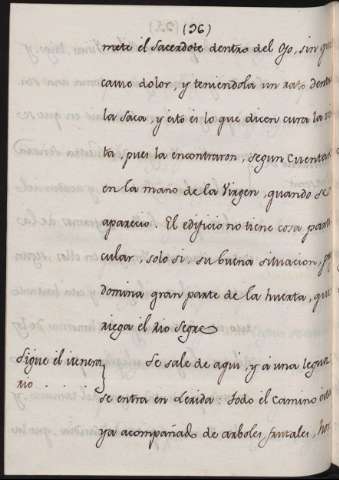 (96)
mete el Sacerdote dentro del Ojo, sin que
cause dolor, y teniendola un rato dentr
la saca, y esto es lo que dicen cura la
ta, pues la encontraron, segun cuentan
en la mano de la Virgen, quando se
apareció. El edificio no tiene cosa parti
cular, solo si, su buena situacion,
domina gran parte de la huerta, que
riega el Rio Segre
Sigue el itenera
rio
Se sale de aqui, y á una legua
se entra en Lerida: todo el camino
ya acompañado de arboles frutales,